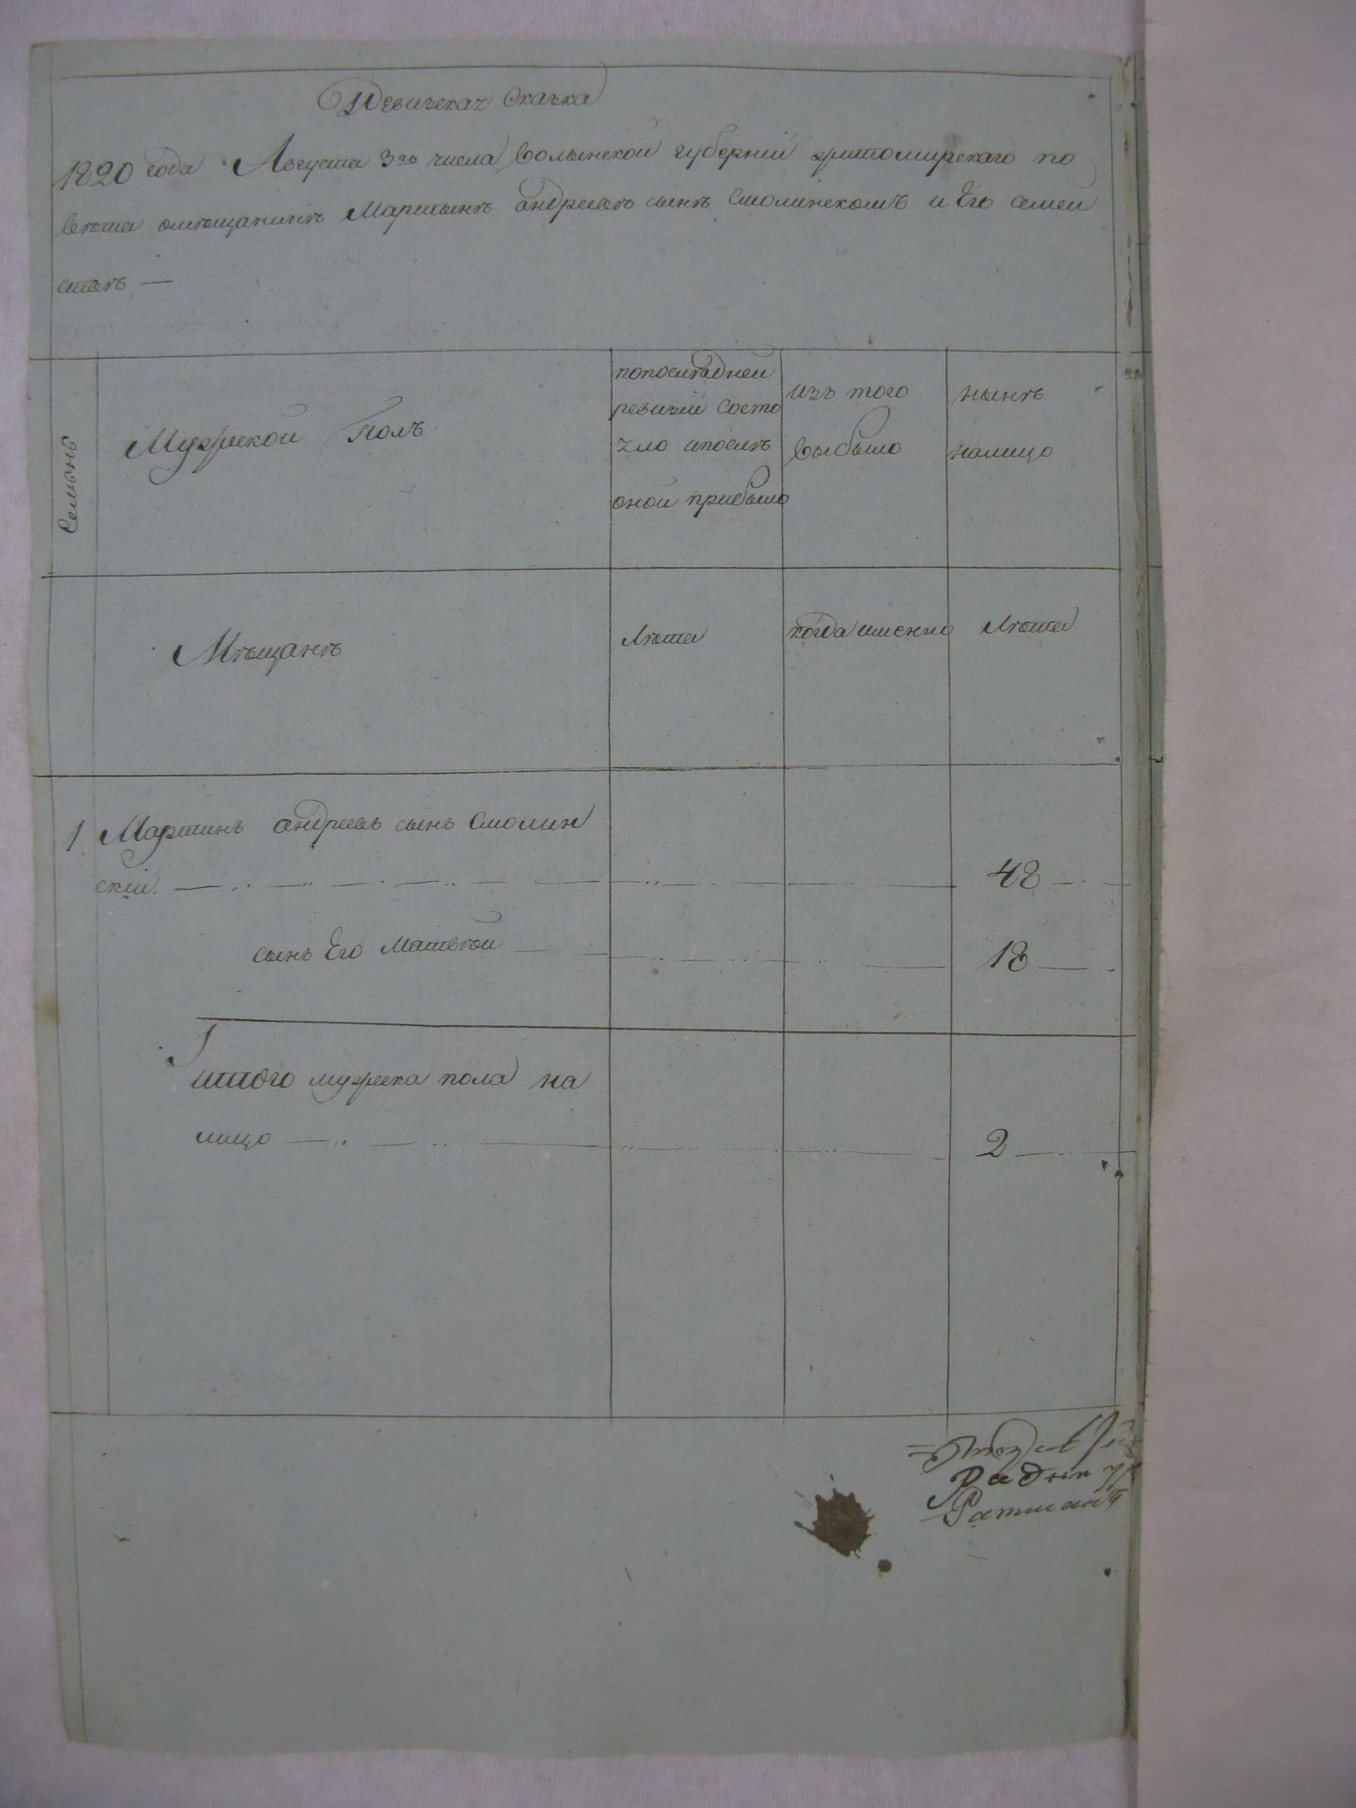 Ревизская Сказка
1820 года Августа 3го числа Волынской губерніи житомирскаго по
вѣта омѣщанинѣ Мартынѣ андреевѣ сынѣ Смолинскомъ и Его семеи
ствѣ —
Семьянъ
Мужеской Полъ
попослѣдней
ревизіи состо
яло ипослѣ
оной прибыло
изъ того
выбыло
нынѣ
налицо
Мѣщанѣ
Лѣта
когда имѣнно
Лѣта
1 Мартинъ андреевъ сынъ Смолин
скій 48
сынъ Его Матвѣй 18
Итого мужеска пола на
лицо 2
Ратманъ